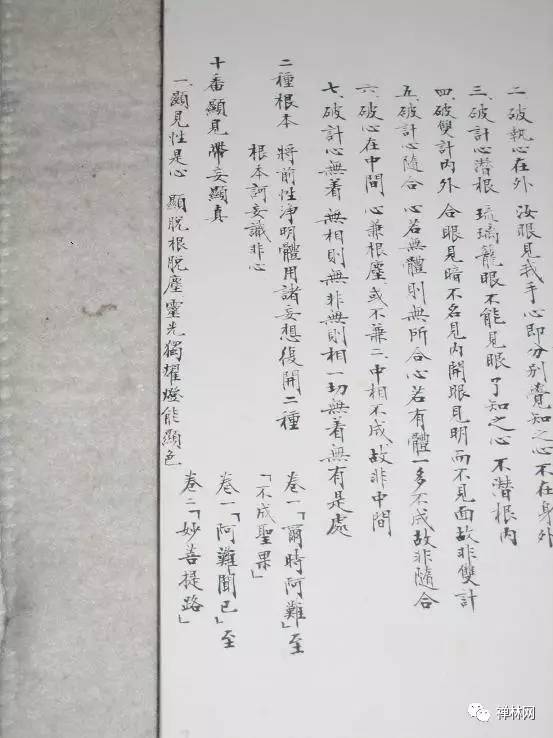 二 破执心在外 汝眼見我手心即分别覺知之心不在身外
三 破計心潜根 琉璃籠眼不能見眼 了知之心 不潜根内
四 破雙計内外 合眼見暗不名見内開眼見明而不見面故非雙計
五 破計心隨合 心若無體則無所合心若有體一多不成故非隨合
六 破心在中間 心兼根塵或不兼二中相不成故非中間
七 破計心無着 無相則無非無則相一切無着無有是處
二種根本 將前性淨明體用諸妄想復開二種
卷一「爾時阿難」至
根本訶妄識非心
「不成聖果」
十番顯見 帶妄顯真
卷一「阿難聞已」至
一 顯見性是心 顯脱根脱塵靈光獨耀燈能顯色
卷二「妙菩提路」
禅林网